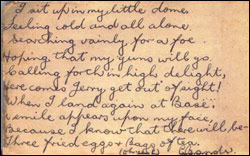 I sit up in my little dome.
Feeling cold and all alone.
Searching vainly for a foe
Hoping that my guns will go.
Calling forth in high delight,
Here comes Jerry get out of sight!
When I land again at Base:
A smile appears upon my face,
Because I know that there will be -
Three fried eggs & Bags of tea.